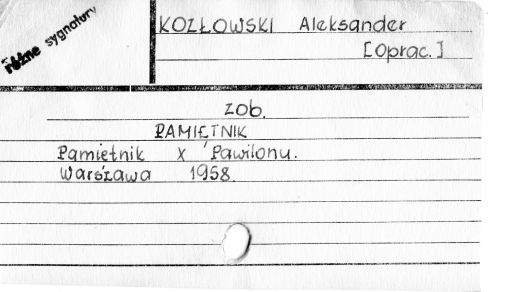 różne sygnatury
KOZŁOWSKI Aleksander
[oprac.]
zob.
PAMIĘTNIK
Pamiętnik X Pawilonu.
Warszawa 1958.